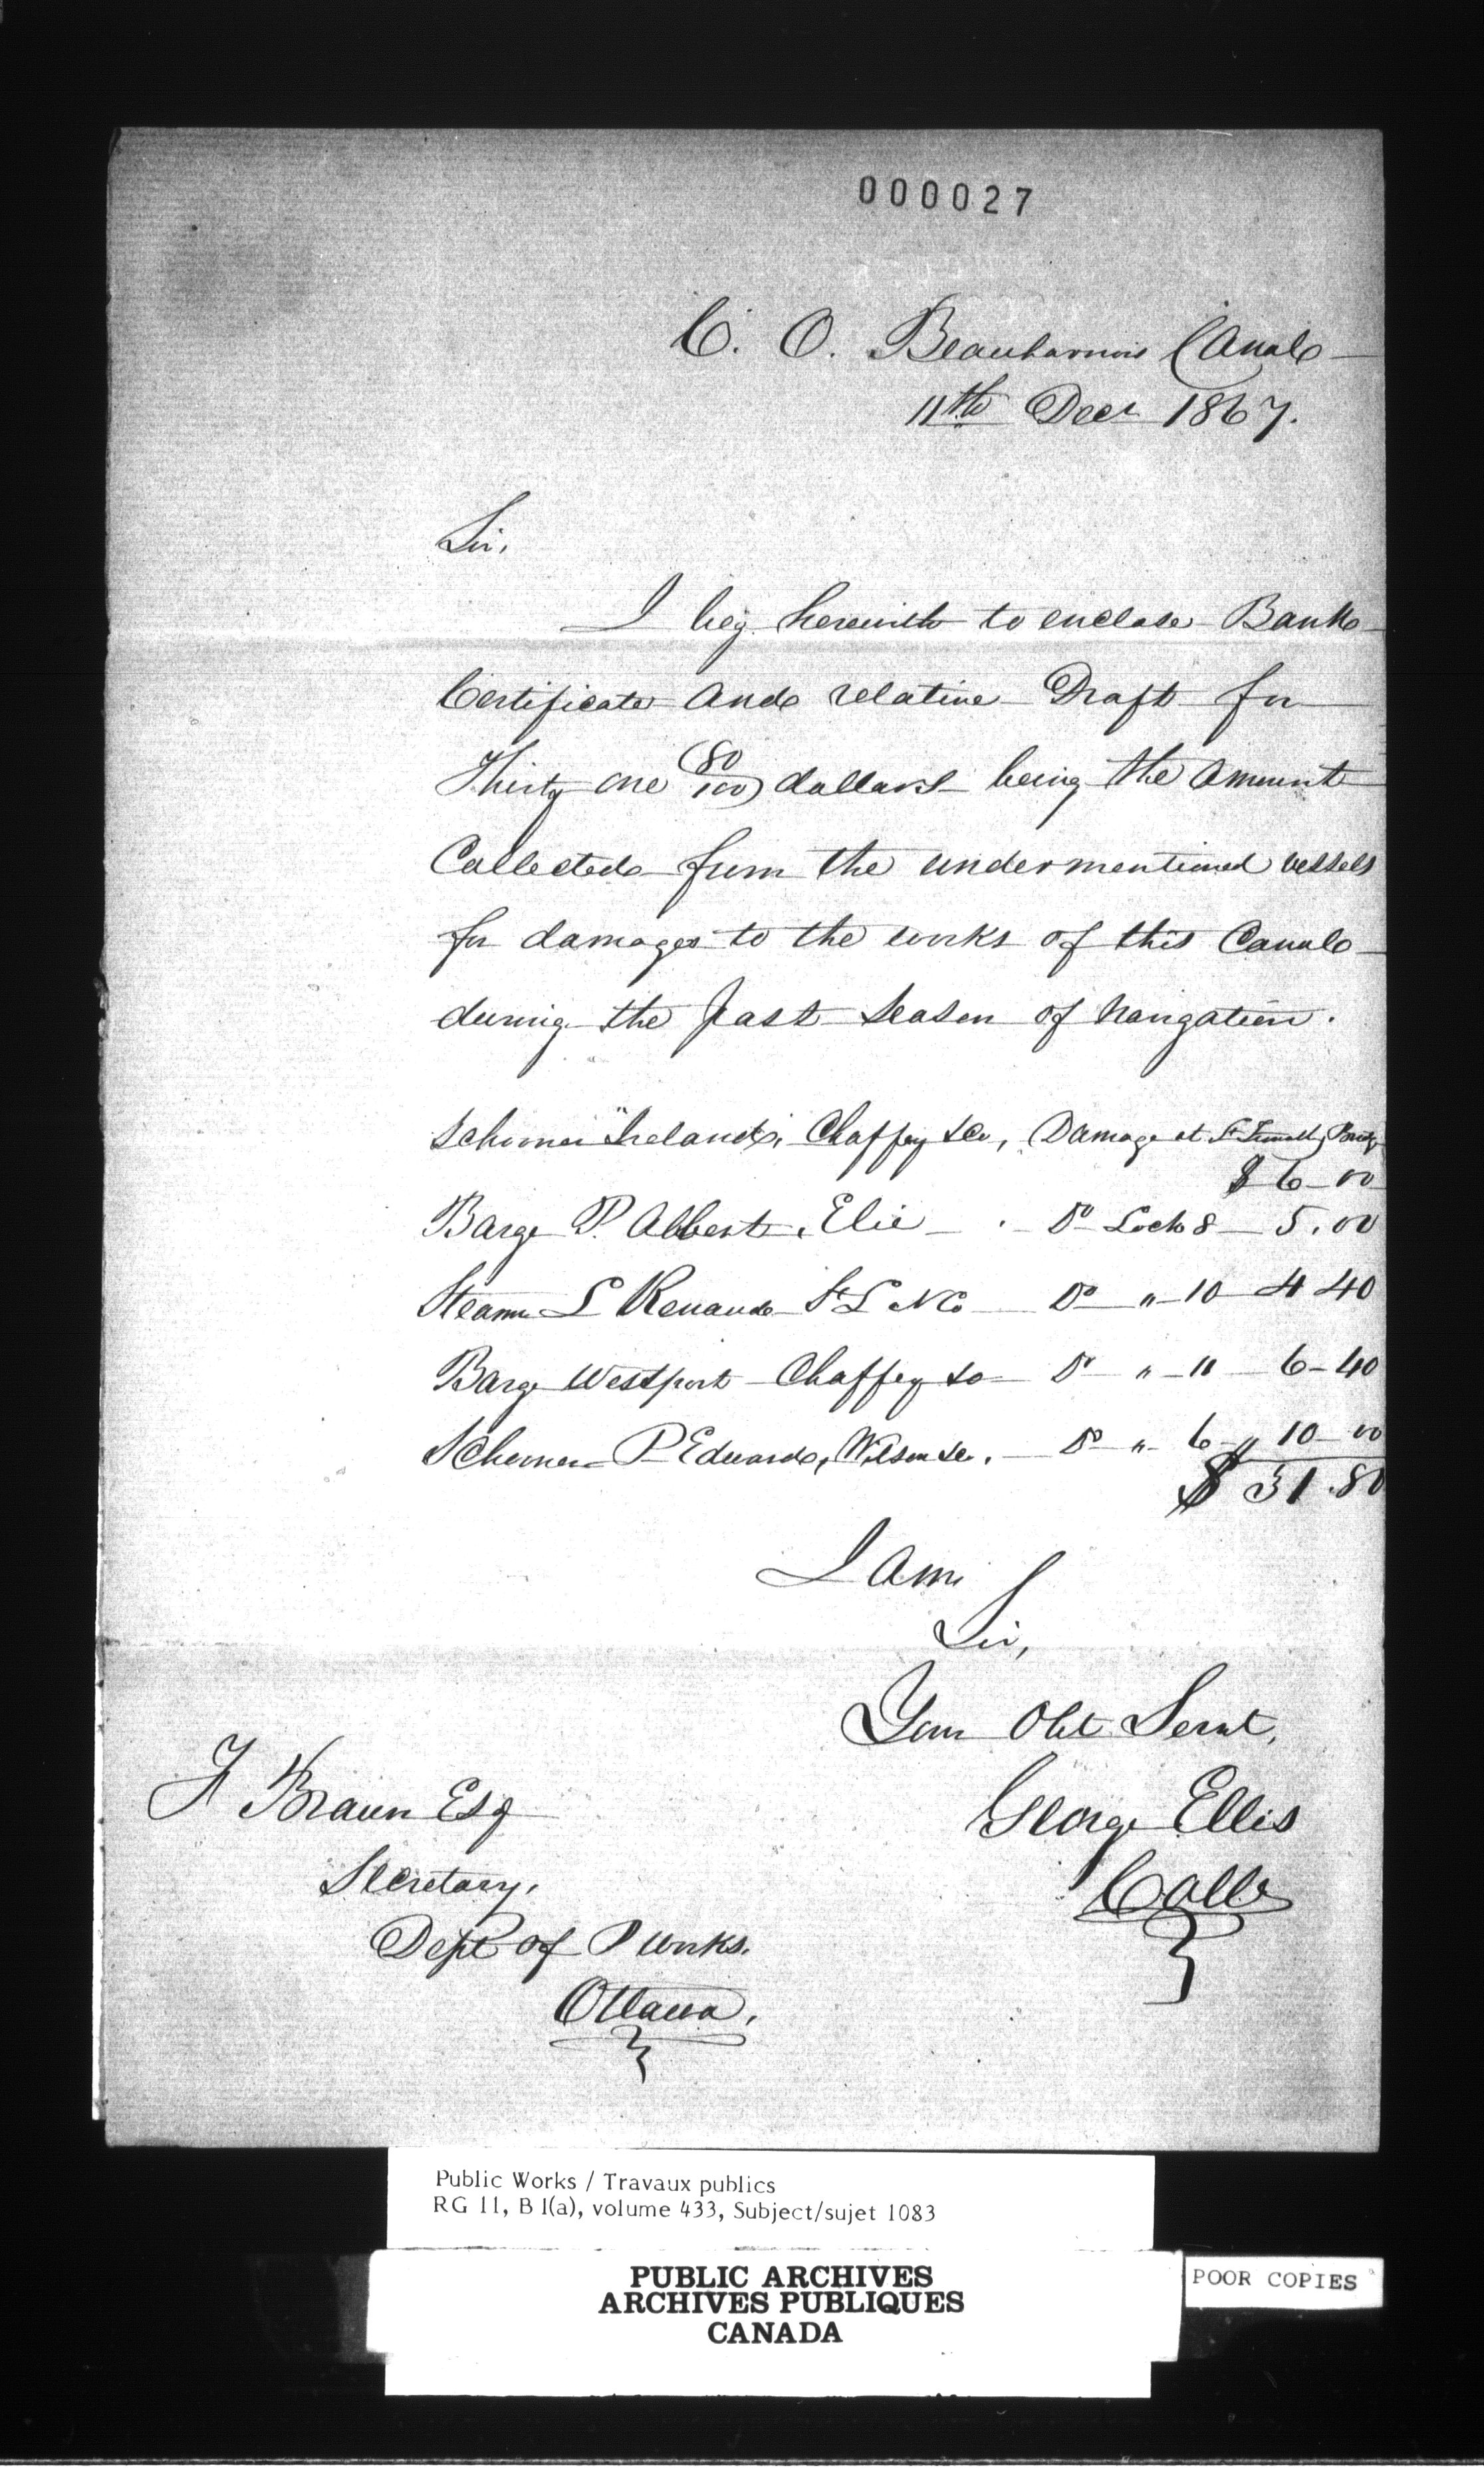 000027
C. O. Beauharnois Canal
11th Decr 1867.
Sir,
I beg herewith to enclose Bank
Certificate and relative Draft for
Thirty one (80/100) dollars being the amount
Collected from the undermentioned vessels
for damages to the works of this Canal
during the past season of Navigation.
Schooner "Ireland", Chaffey &Co, Damage at St Bridge
$ 6-00
Barge P. Albert, Elie - Do Lock 8 - 5.00
Steamr L Renaud St L N Co Do " 10 4 40
Barge Westport Chaffey &Co Do " 11 6-40
Schooner P Edward, Wilson &Co. Do " 6 " 10-00
$ 31.80
I am
Sir,
Your Obt Servt,
George Ellis
Collr
F Braun Esq
Secretary,
Dept of P Works.
Ottawa,
Public Works / Travaux publics
RG 11, B 1(a), volume 433, Subject/sujet 1083
PUBLIC ARCHIVES
ARCHIVES PUBLIQUES
CANADA
POOR COPIES